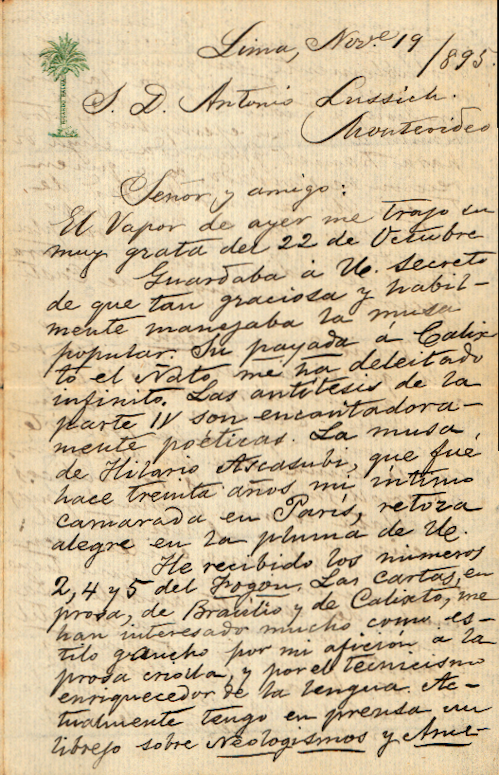 Lima, Nov.e 19/895.
RICARDO PALMA
S. D. Antonio Lussich.
Montevideo
Señor y amigo:
El Vapor de ayer me trajo su
muy grata del 22 de Octubre
Guardaba á U. secreto
de que tan graciosa y habil-
mente manejaba la musa
popular. Su payada á Calix
to el Ñato, me ha deleitado
infinito. Las antítesis de la
parte IV son encantadora-
mente poéticas. La musa
de Hilario Ascasubi, que fué
hace treinta años mi íntimo
camarada en París, retoza
alegre en la pluma de U.
He recibido los numeros
2, 4 y 5 del Fogon. Las cartas, en
prosa, de Braulio y de Calixto, me
han interesado mucho como es-
tilo gaucho por mi afición a la
prosa criolla, y por el tecnicismo
enriquecedor de la lengua. Ac-
tualmente tengo en prensa un
librejo sobre Neologismos y Ame-